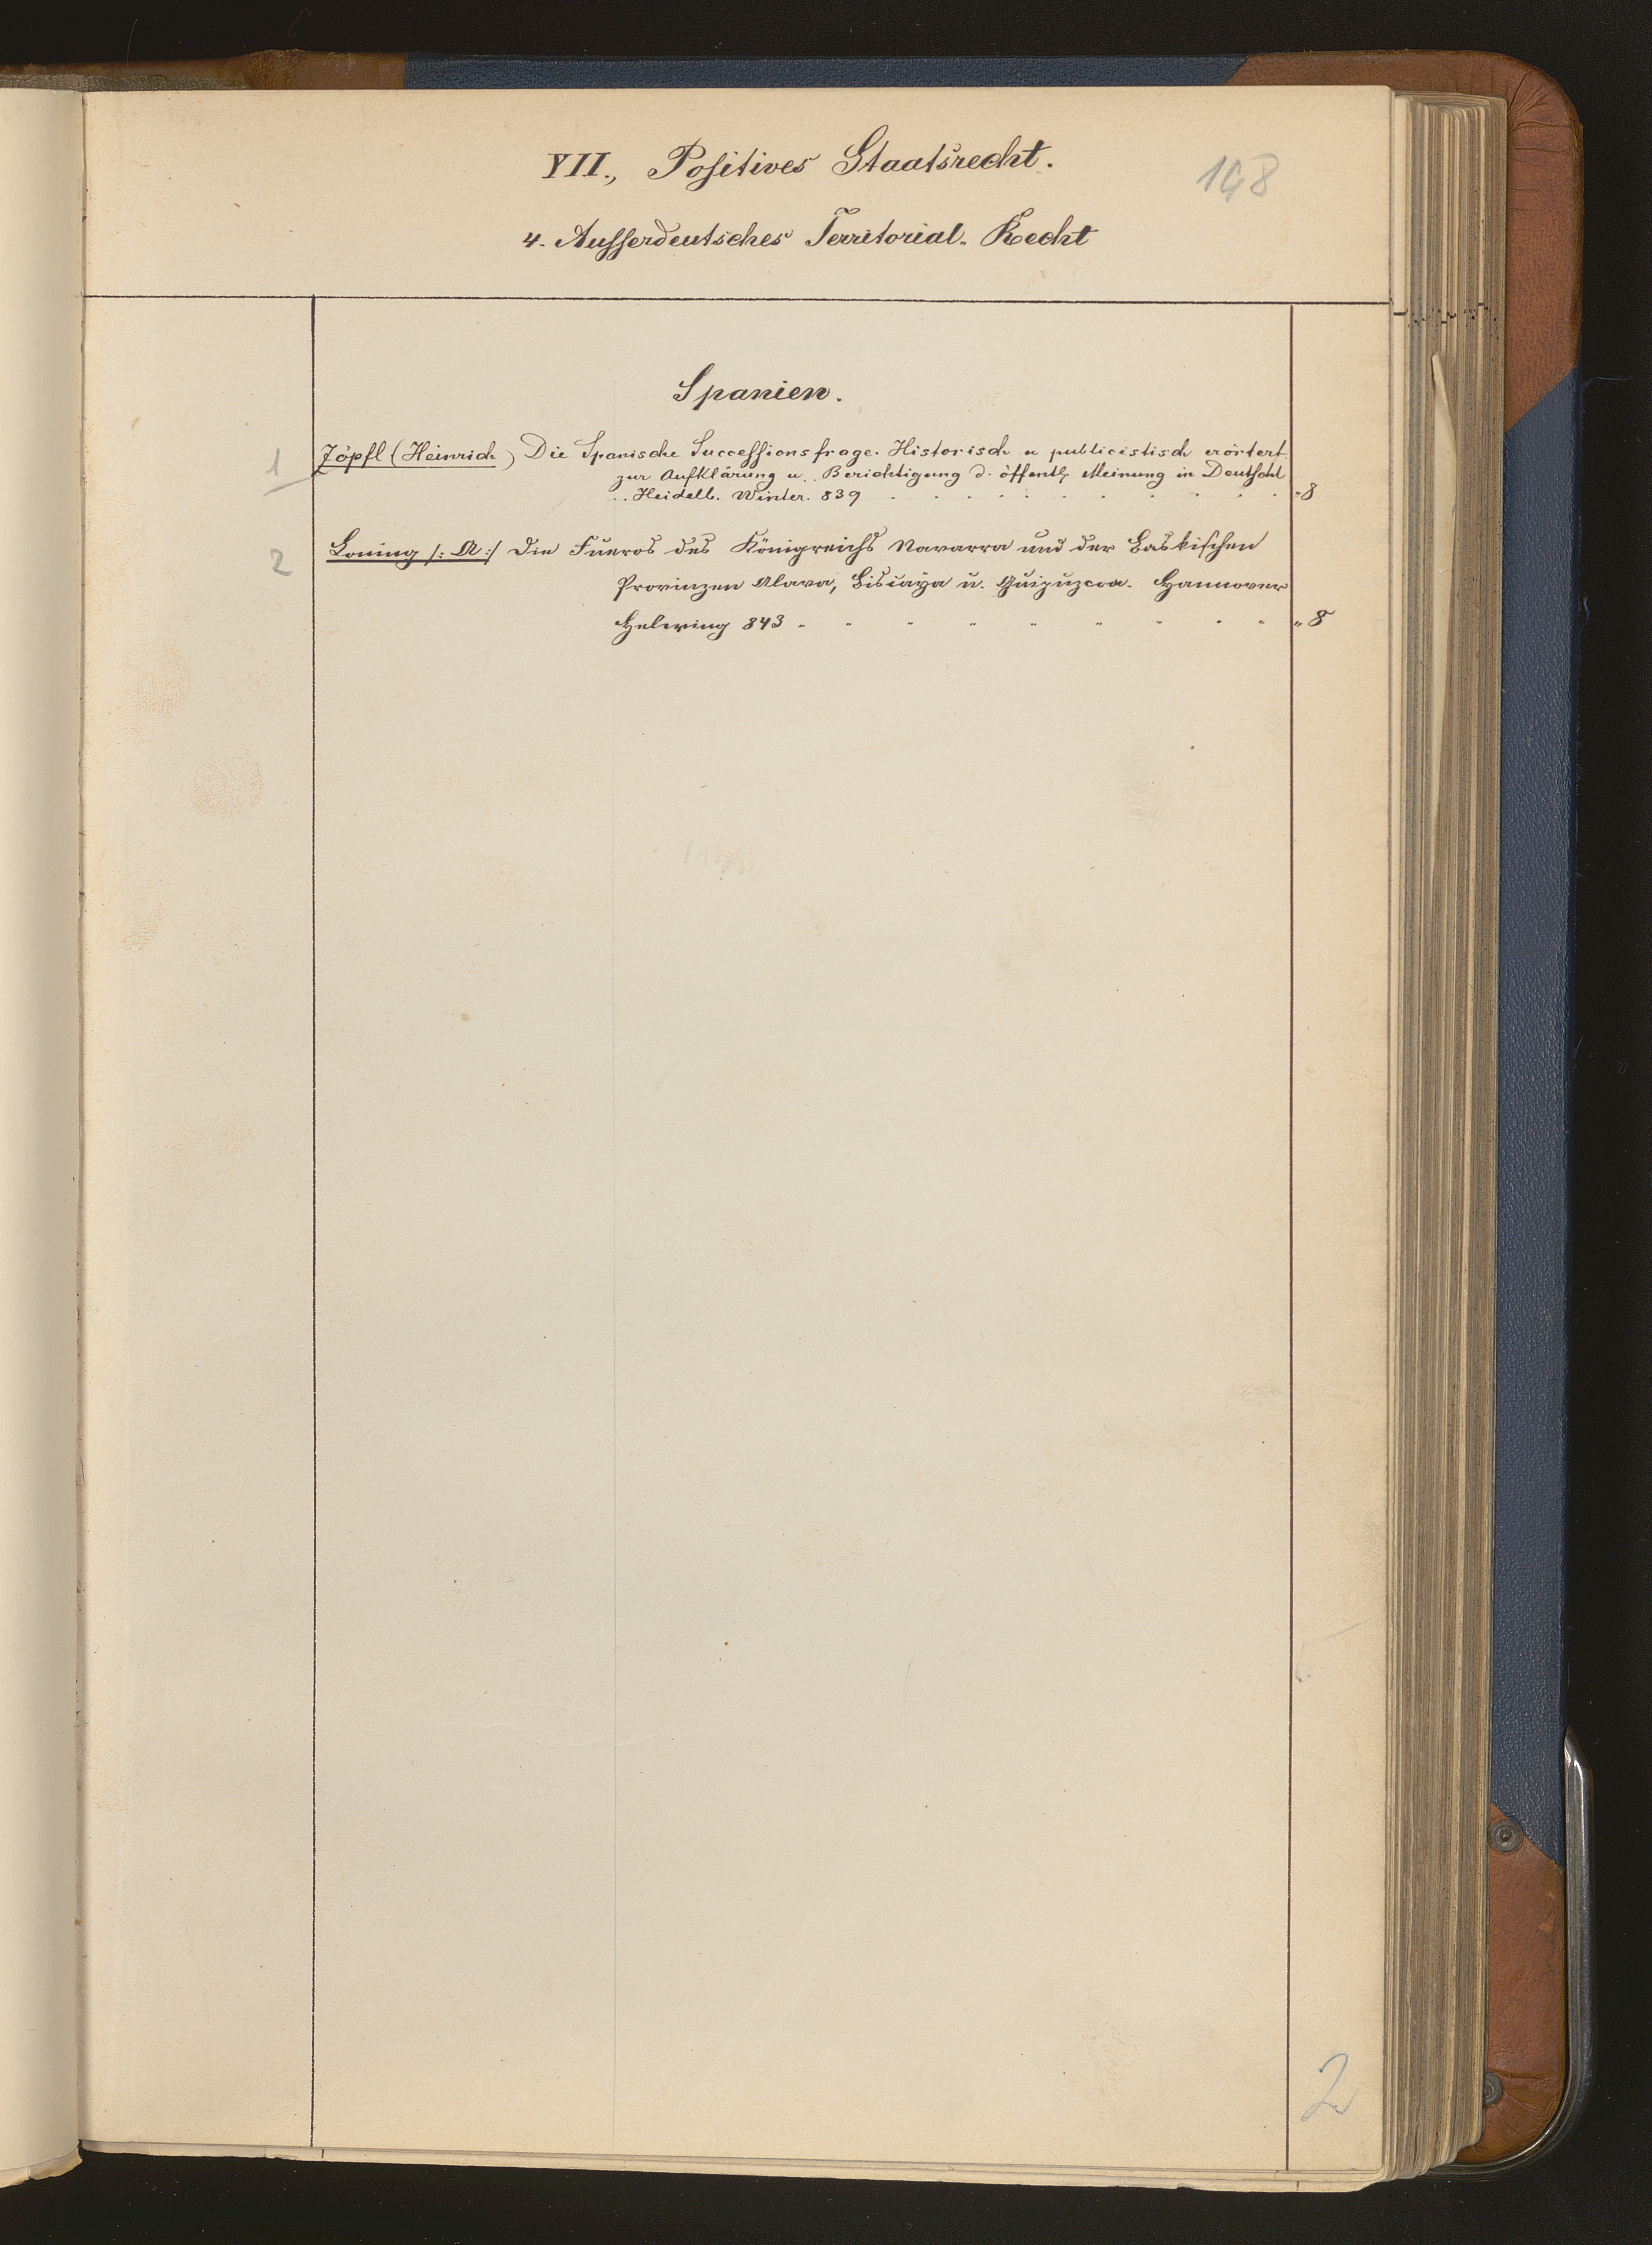 VII., Positives Staatsrecht.
148
4. Ausserdeutsches Territorial-Recht
Spanien.
1 Zöpfl (Heinrich) Die Spanische Successionsfrage. Historisch u publicistisch erörtert
zur Aufklärung u. Berichtigung d. öffentl. Meinung in Deutschl
Heidelb. Winter. 839 . . . . . . . . . . . "8
2 Loning /: A :/ Die Fueros des Königreichs Navarra und der Baskischen
Provinzen Alava, Biscaÿa u. Guipuzcoa. Hannover
Helwing 843 " " " " " " " " " " 8
2